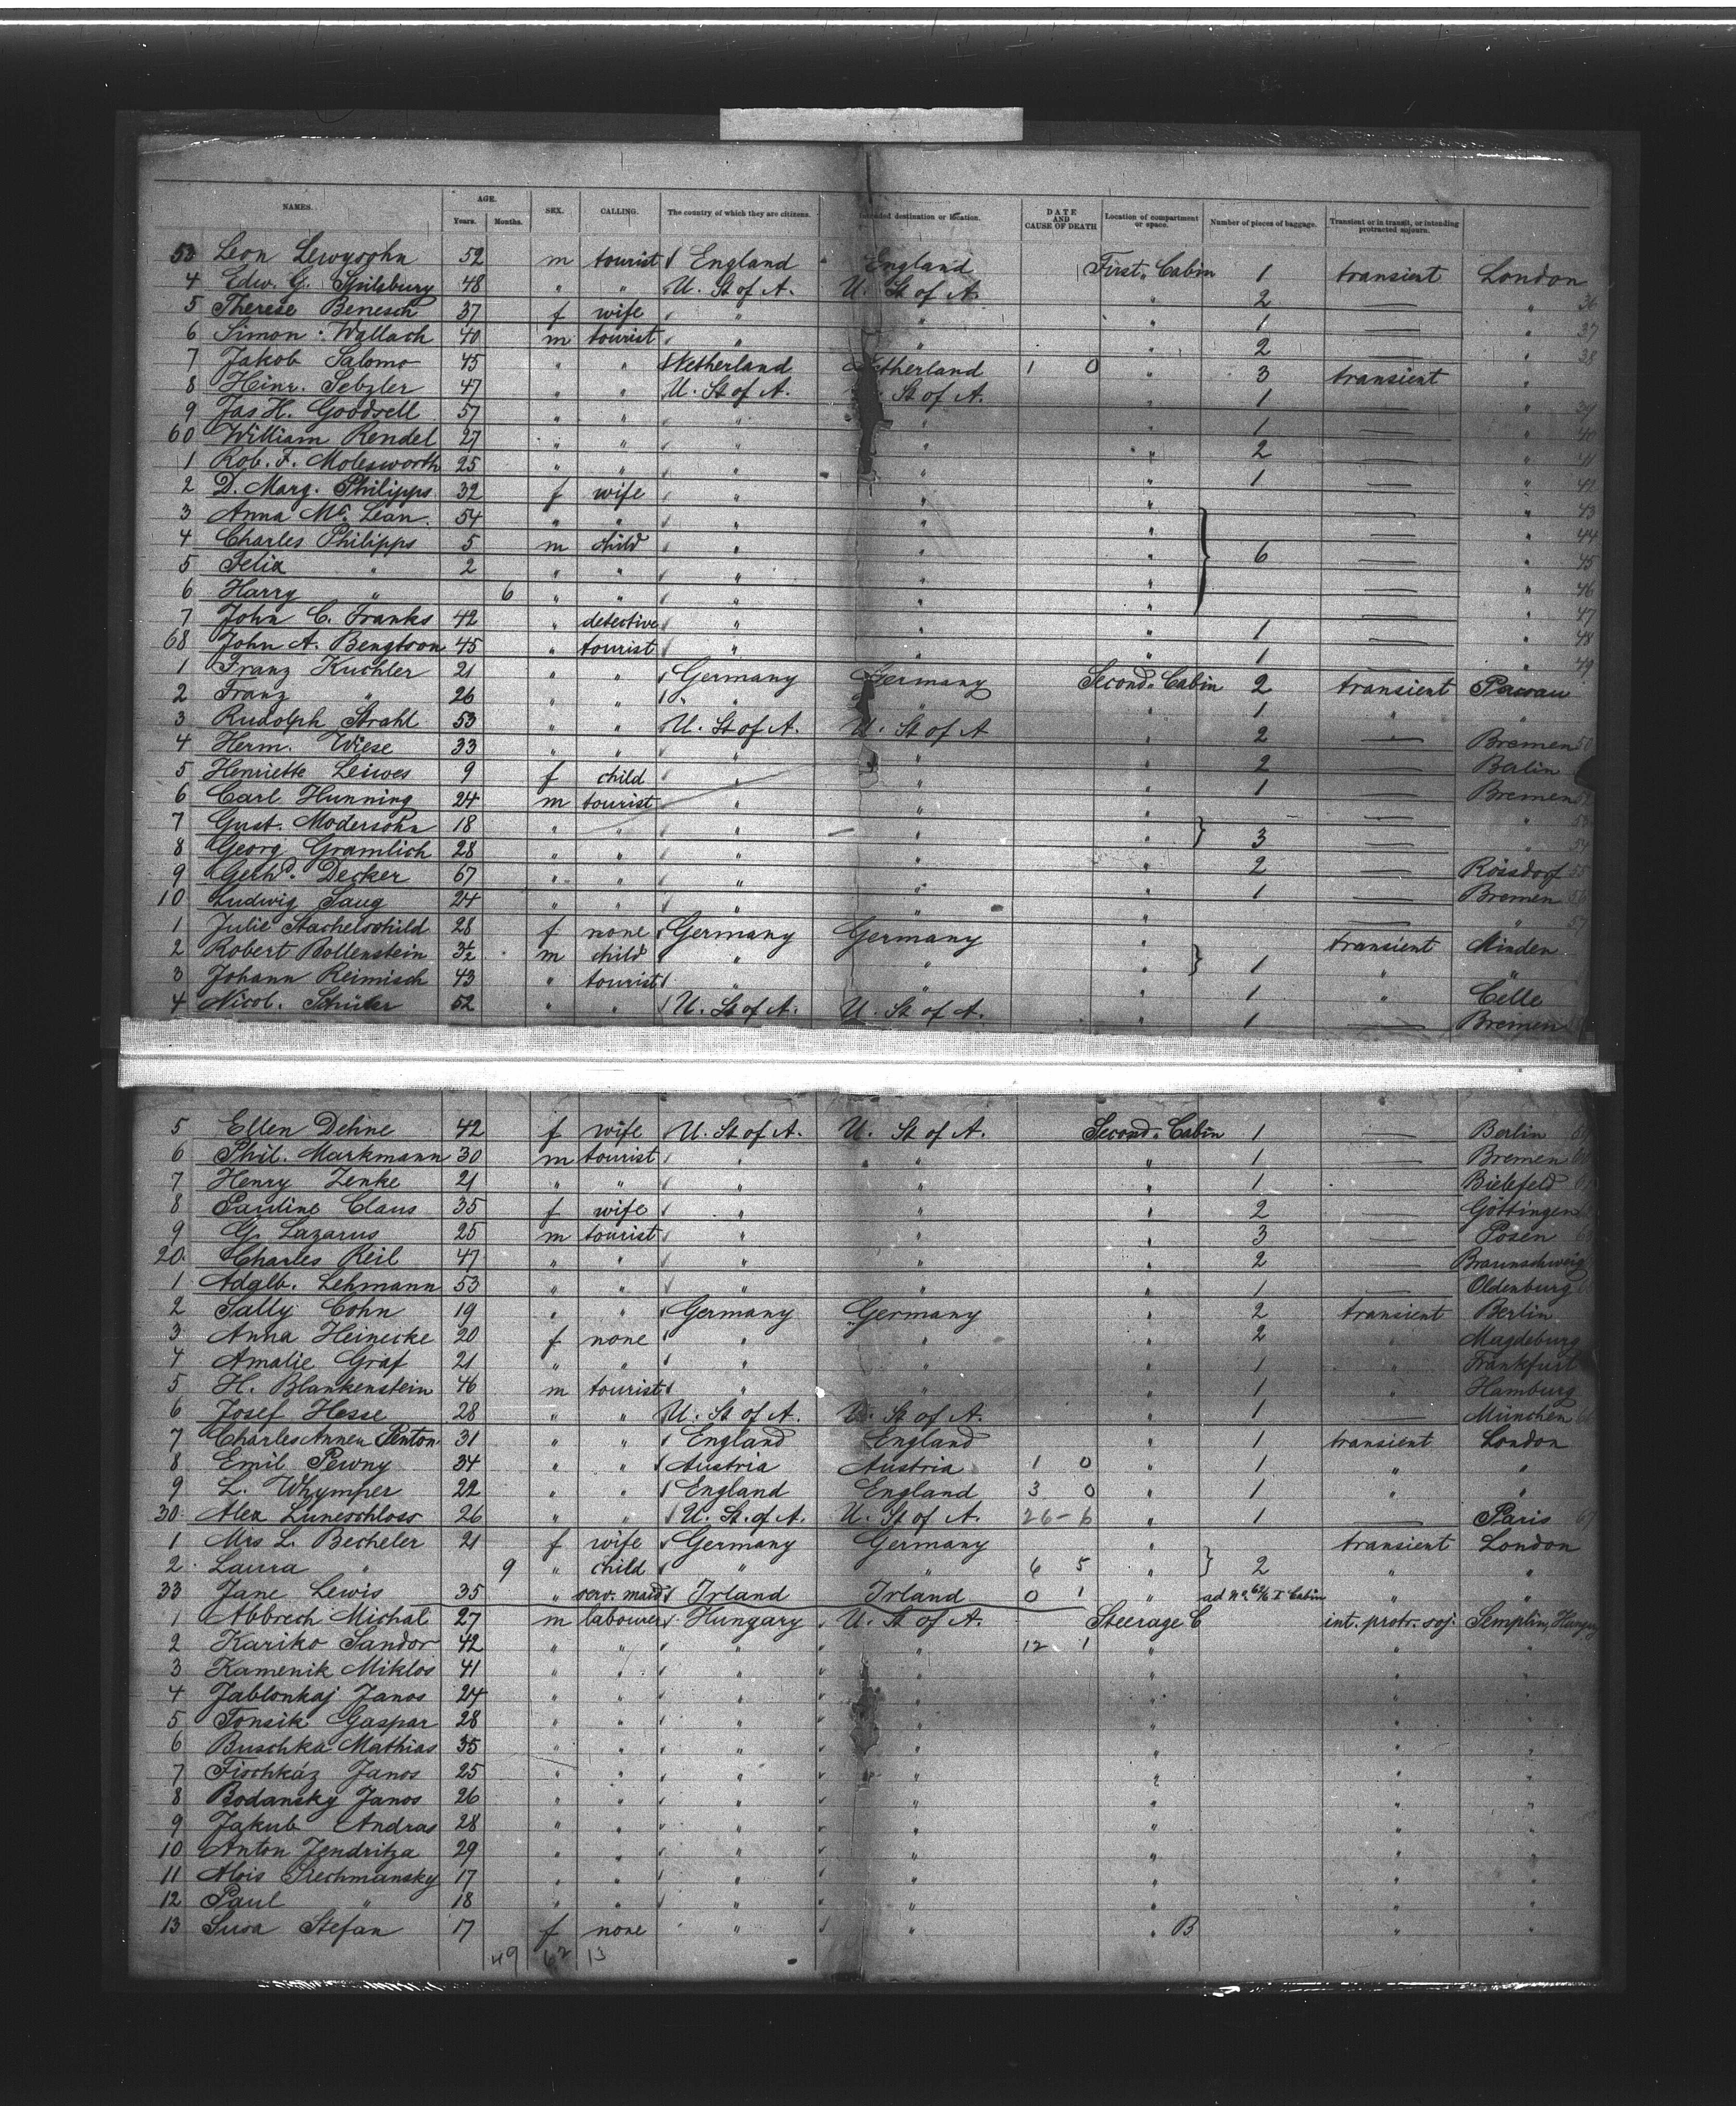 NAMES. AGE. Years. Months. SEX. CALLING. The country of which they are citizens. Intended destination or location. DATE AND CAUSE OF DEATH Location of compartment or space. Number of pieces of baggage. Transient or in transit, or intending protracted sojourn.
53 Leon Lewysohn 52 m tourist England England First Cabin 1 transient London
4 Edw. G. Spilsbury 48 " " U. St of A. U. St of A. " 2 — " 36
5 Therese Benesch 37 f wife " " " 1 — " 37
6 Simon Wallach 40 m tourist " " " 2 — " 38
7 Jakob Salomo 45 " " Netherland Netherland 1 0 " 3 transient "
8 Heinr. Sebzler 47 " " U. St of A. U. St of A. " 1 — " 39
9 Jas H. Goodsell 57 " " " " " 1 — " 40
60 William Rendel 27 " " " " " 2 — " 41
1 Rob. F. Molesworth 25 " " " " " 1 — " 42
2 D. Marg. Philipps 32 f wife " " " — " 43
3 Anna Mc Lean 54 " " " " " — " 44
4 Charles Philipps 5 m child " " " 6 — " 45
5 Felix " 2 " " " " " — " 46
6 Harry " 6 " " " " " — " 47
7 John C. Franks 42 " detective " " " 1 — " 48
68 John A. Bengtson 45 " tourist " " " 1 — " 49
1 Franz Kuchler 21 " " Germany Germany Second Cabin 2 transient Passau
2 Franz " 26 " " " " " 1 " "
3 Rudolph Strahl 53 " " U. St of A. U. St of A " 2 — Bremen 50
4 Herm. Wiese 33 " " " " " 2 — Berlin
5 Henriette Leiwes 9 f child " " " 1 — Bremen 52
6 Carl Hunning 24 m tourist " " " — " 53
7 Gust. Modersohn 18 " " " " " 3 — " 54
8 Georg Gramlich 28 " " " " " 2 — Rossdorf 55
9 Gerhd. Decker 67 " " " " " 1 — Bremen 56
10 Ludwig Saug 24 " " " " " — " 57
1 Julie Stachelschild 28 f none Germany Germany " transient Minden
2 Robert Bollenstein 3½ m child " " " 1 " "
3 Johann Reimisch 43 " tourist " " " 1 " Celle
4 Nicol. Schüter 52 " " U. St of A. U. St of A. " 1 — Bremen
5 Ellen Dehne 42 f wife U. St of A. U. St of A. Second Cabin 1 — Berlin 59
6 Phil. Markmann 30 m tourist " " " 1 — Bremen 60
7 Henry Zenke 21 " " " " " 1 — Bielefeld 61
8 Pauline Claus 35 f wife " " " 2 — Göttingen
9 G. Lazarus 25 m tourist " " " 3 — Posen 63
20 Charles Reil 47 " " " " " 2 — Braunschweig
1 Adalb. Lehmann 53 " " " " " 1 — Oldenburg
2 Sally Cohn 19 " " Germany Germany " 2 transient Berlin
3 Anna Heinecke 20 f none " " " 2 " Magdeburg
4 Amalie Graf 21 " " " " " 1 " Frankfurt
5 H. Blankenstein 46 m tourist " " " 1 " Hamburg
6 Josef Hesse 28 " " U. St of A. U. St of A. " 1 — München 66
7 Charles Annen Penton 31 " " England England " 1 transient London
8 Emil Pewny 34 " " Austria Austria 1 0 " 1 " "
9 L. Whymper 22 " " England England 3 0 " 1 " "
30 Alex Luneschloss 26 " " U. St. of A. U. St of A. 26-6 " 1 — Paris 67
1 Mrs L. Becheler 21 f wife Germany Germany " transient London
2 Laura " 9 " child " " 6 5 " 2 " "
33 Jane Lewis 35 " serv. maid Irland Irland 0 1 " ad No. 62/6 I Cabin " "
1 Abbrech Michal 27 m labourer Hungary U. St of A. Steerage C int. protr. soj. Semplin, Hungary
2 Kariko Sandor 42 " " " " 12 1 " " "
3 Kamenik Miklos 41 " " " " " " "
4 Jablonkaj Janos 24 " " " " " " "
5 Tonsik Gaspar 28 " " " " " " "
6 Buschka Mathias 35 " " " " " " "
7 Fischkáz Janos 25 " " " " " " "
8 Bodansky Janos 26 " " " " " " "
9 Jakub Andras 28 " " " " " " "
10 Anton Jendritza 29 " " " " " " "
11 Alois Stechmansky 17 " " " " " " "
12 Paul " 18 " " " " " " "
13 Susa Stefan 17 f none " " " B " "
49 62 13